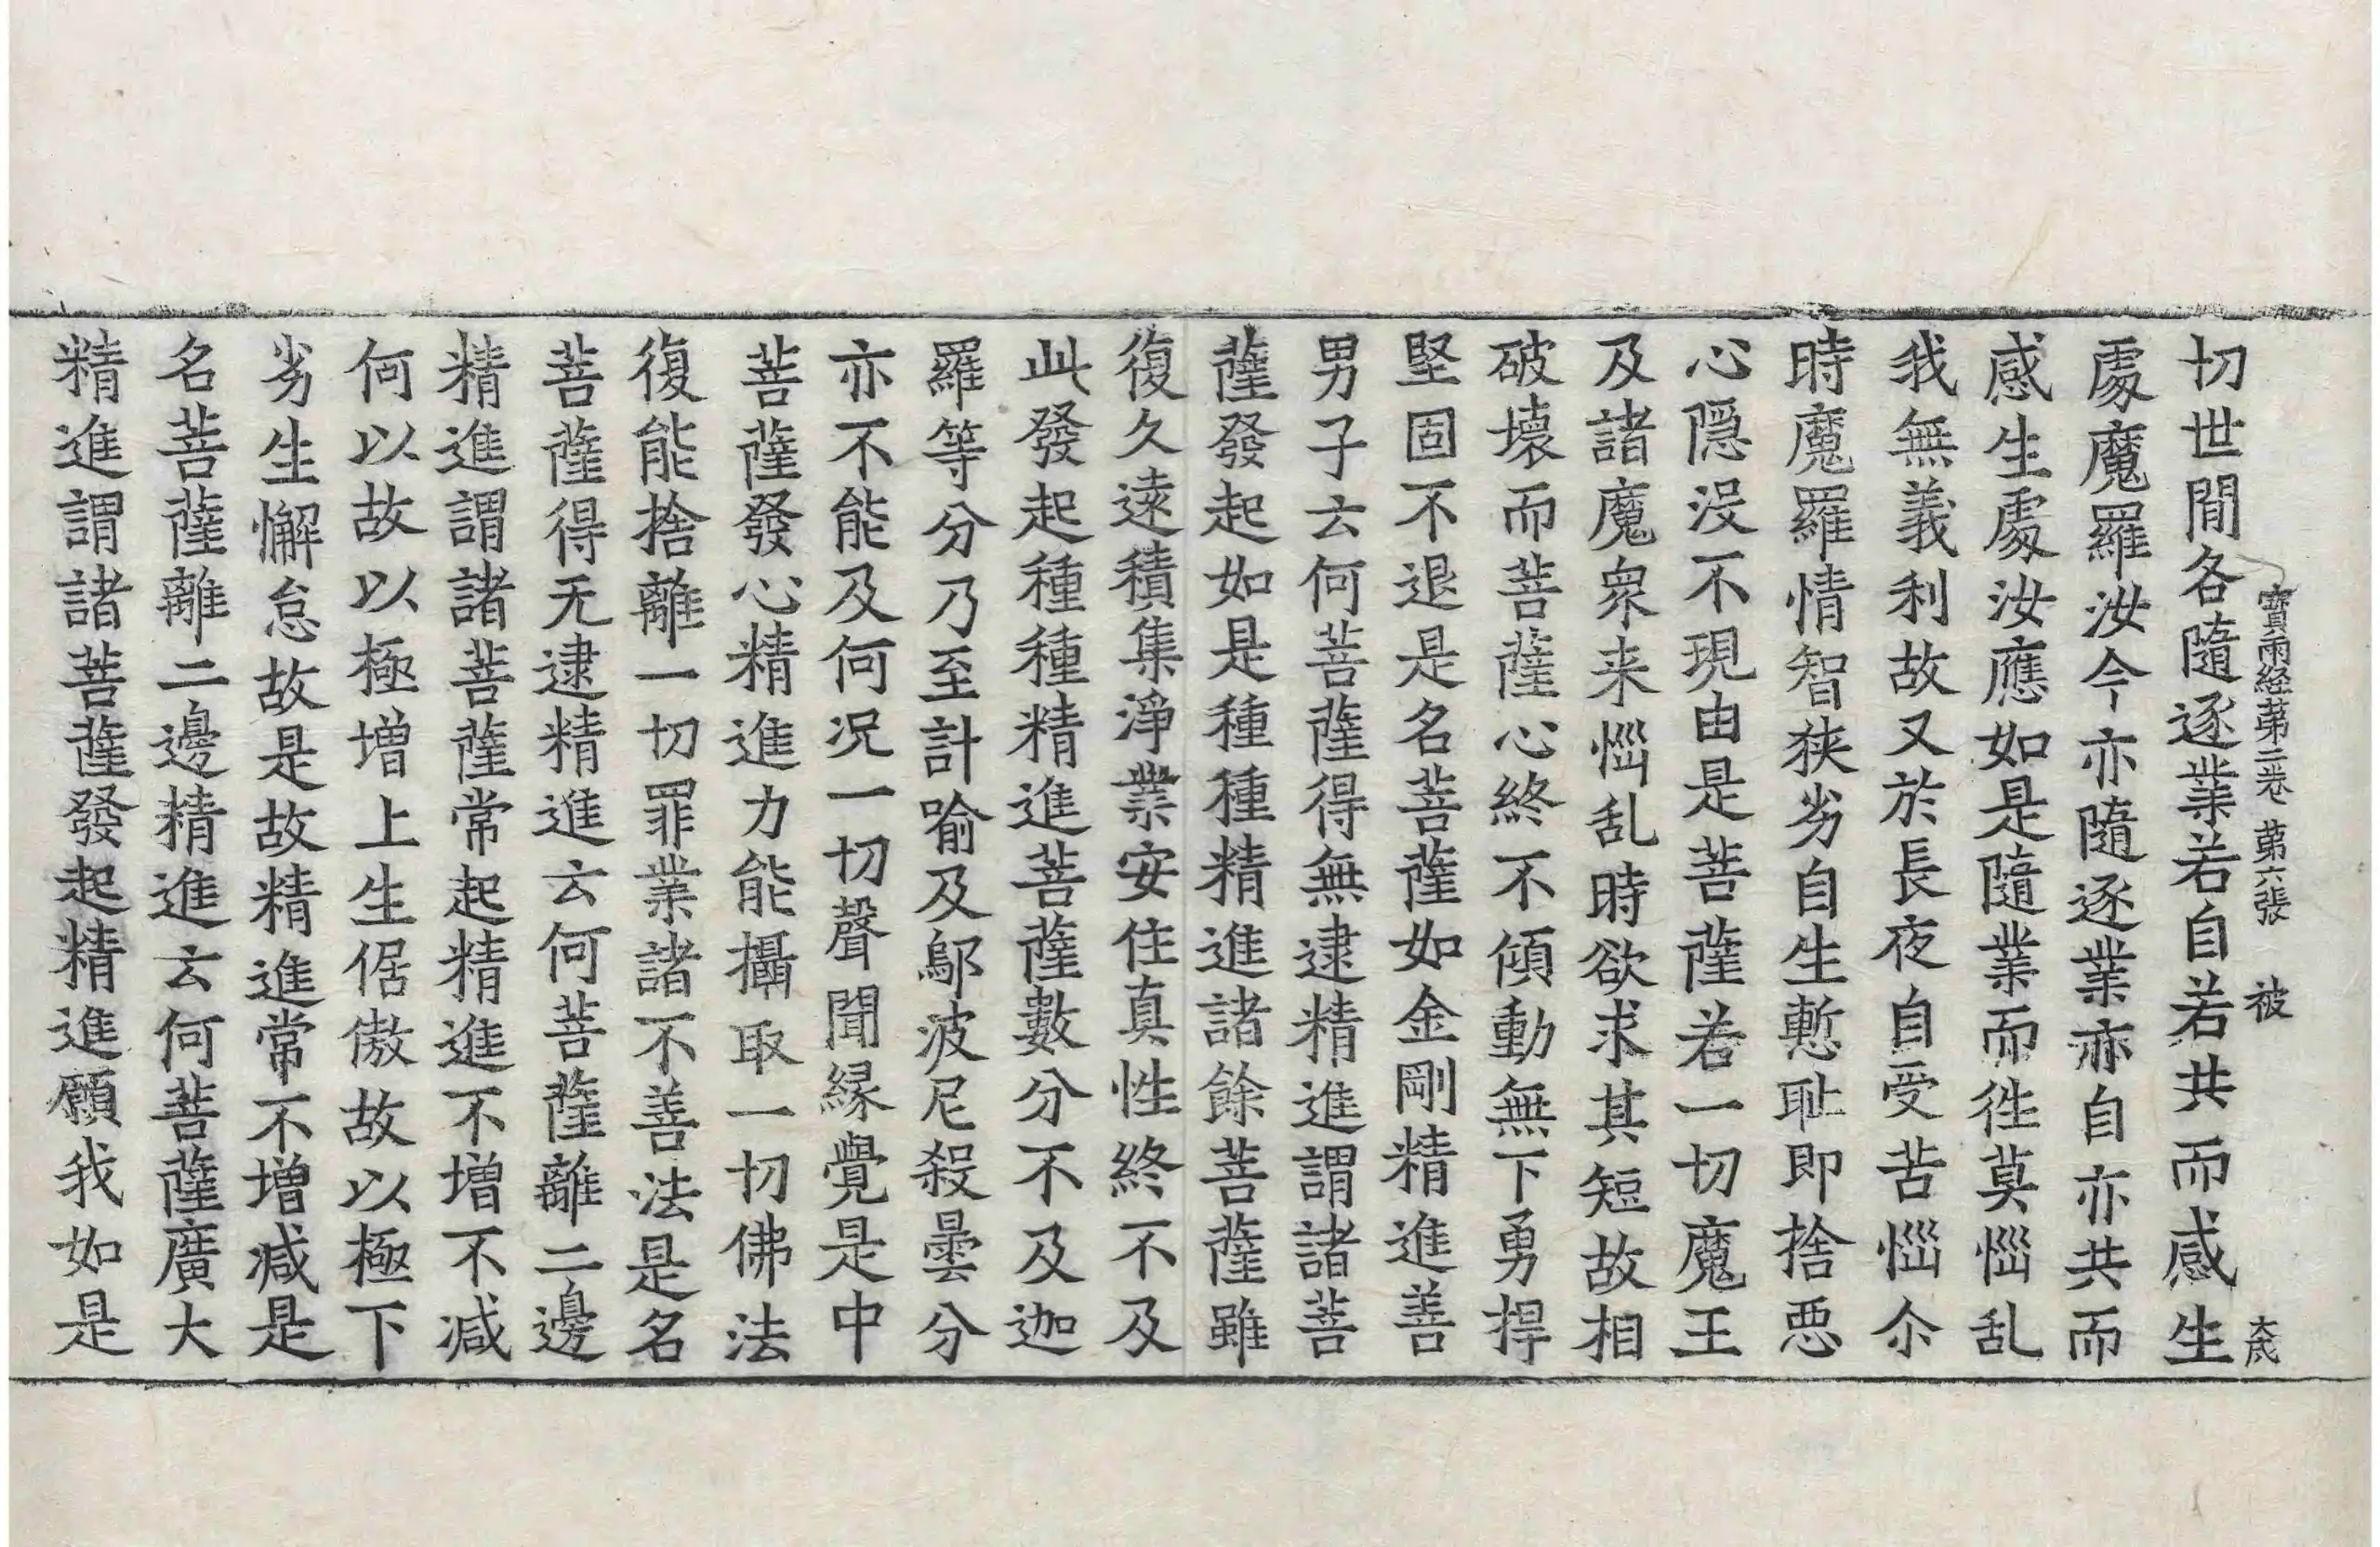 寶雨経苐二卷 苐六張 被 大戌
切世間各隨逐業若自若共而感生
處魔羅汝今亦隨逐業亦自亦共而
感生處汝應如是隨業而徃莫惱乱
我無義利故又於長夜自受苦惱尒
時魔羅情智狹劣自生慙耻即捨惡
心隱没不現由是菩薩若一切魔王
及諸魔衆来惱乱時欲求其短故相
破壞而菩薩心終不傾動無下勇捍
堅固不退是名菩薩如金剛精進善
男子云何菩薩得無逮精進謂諸菩
薩發起如是種種精進諸餘菩薩雖
復久遠積集淨業安住真性終不及
此發起種種精進菩薩數分不及迦
羅等分乃至計喻及鄔波尼殺曇分
亦不能及何况一切聲聞緣覺是中
菩薩發心精進力能攝取一切佛法
復能捨離一切罪業諸不善法是名
菩薩得无逮精進云何菩薩離二邊
精進謂諸菩薩常起精進不增不减
何以故以極增上生倨傲故以極下
劣生懈怠故是故精進常不增减是
名菩薩離二邊精進云何菩薩廣大
精進謂諸菩薩發起精進願我如是